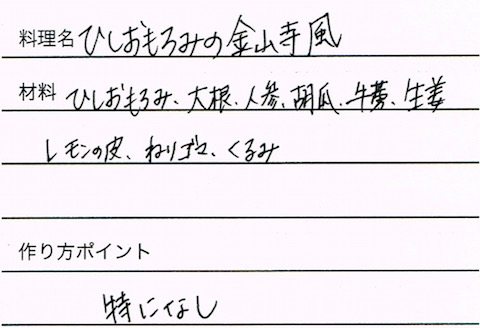 料理名 ひしおもろみの金山寺風
材料 ひしおもろみ、大根、人参、胡瓜、牛蒡、生姜
レモンの皮、ねりゴマ、くるみ
作り方ポイント
特になし